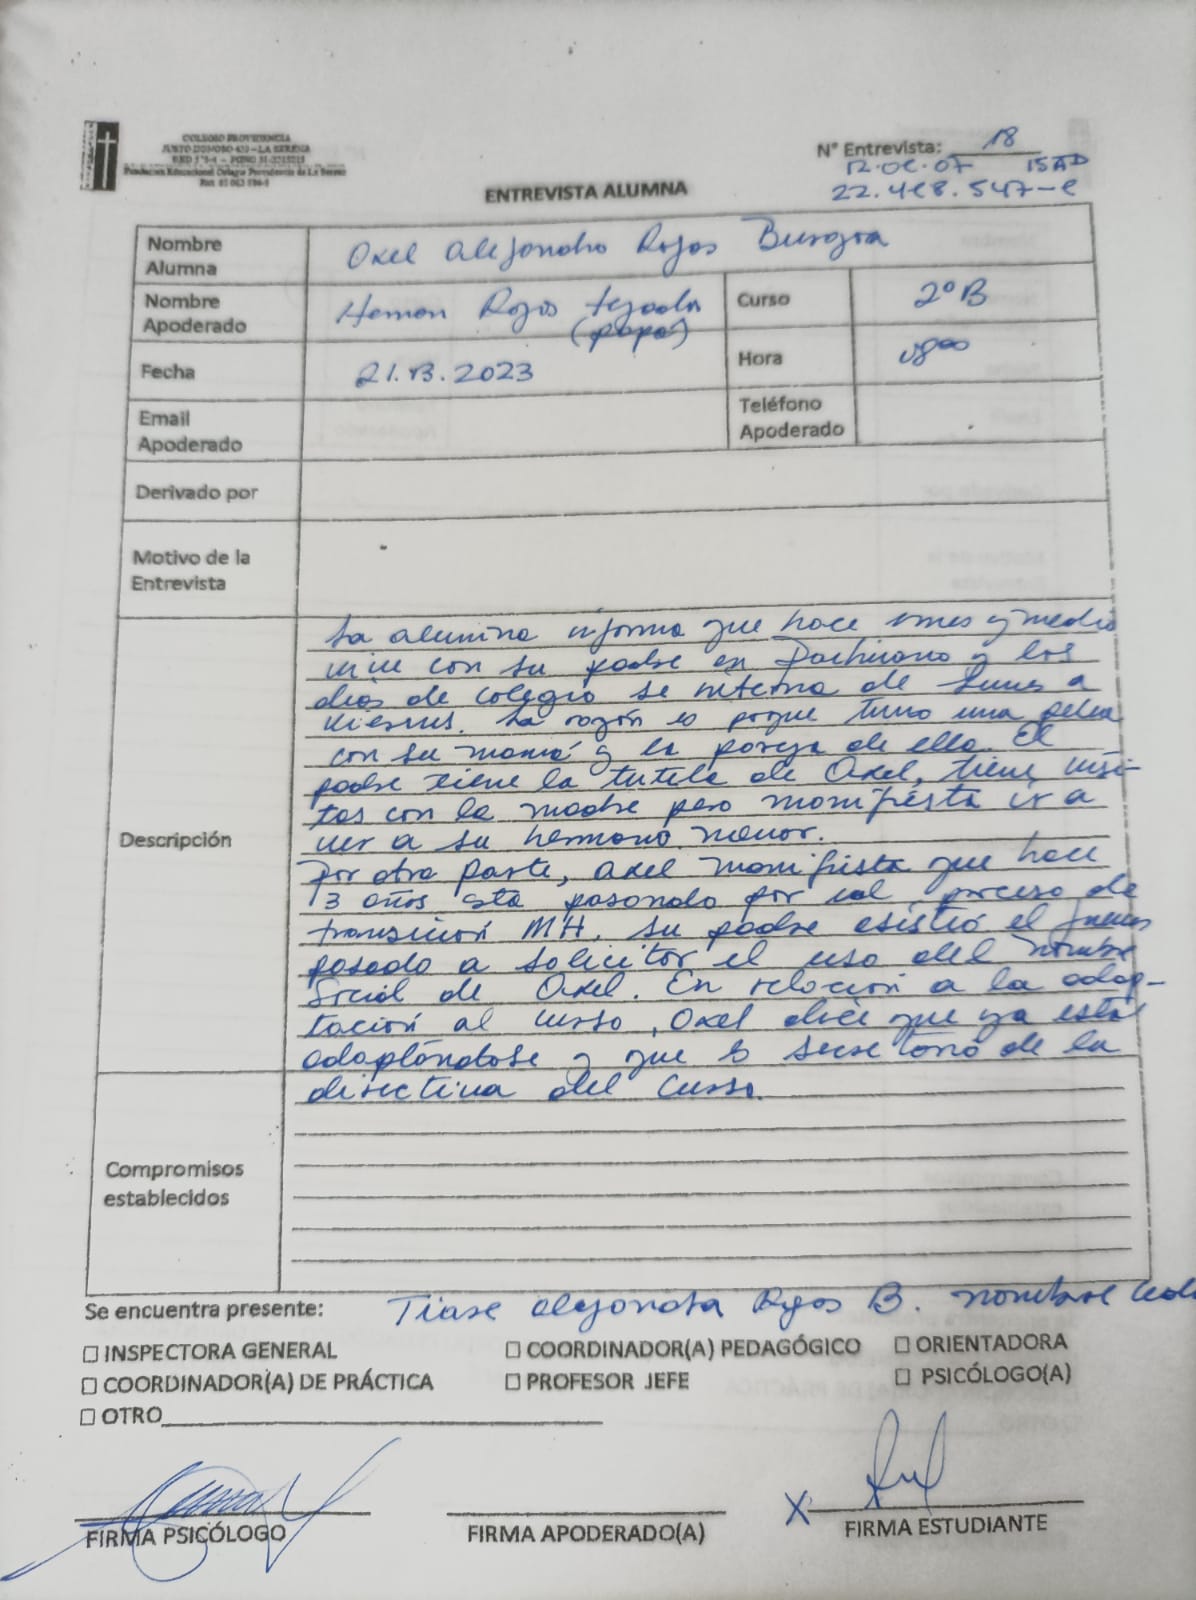 COLEGIO PROVIDENCIA
JUSTO DONOSO 420 – LA SERENA
Fundación Educacional Colegio Providencia de La Serena
N° Entrevista: 18
15
ENTREVISTA ALUMNA
Nombre Alumna Axel Alejandro Rojas Burgoa
Nombre Apoderado Hernan Rojas Tejada (papá) Curso 2° B
Fecha 2023 Hora 08:00
Email Apoderado Teléfono Apoderado
Derivado por
Motivo de la Entrevista
Descripción
La alumna informa que hace 1 mes y medio
vive con su padre en Paihuano y los
días de colegio se interna de Lunes a
Viernes. La razón es porque tuvo una pelea
con su mamá y la pareja de ella. El
padre tiene la tutela de Axel, tiene visi-
tas con la madre pero manifiesta ir a
ver a su hermano menor.
Por otra parte, Axel manifiesta que hace
3 años está pasando por el proceso de
transición MH. Su padre asistió el jueves
pasado a solicitar el uso del nombre
Social de Axel. En relación a la adap-
tación al curso, Axel dice que ya está
adaptándose y que es secretario de la
directiva del curso.
Compromisos establecidos
Se encuentra presente: Rojas B. nombre
☐ INSPECTORA GENERAL ☐ COORDINADOR(A) PEDAGÓGICO ☐ ORIENTADORA
☐ COORDINADOR(A) DE PRÁCTICA ☐ PROFESOR JEFE ☐ PSICÓLOGO(A)
☐ OTRO
X
FIRMA PSICÓLOGO FIRMA APODERADO(A) FIRMA ESTUDIANTE